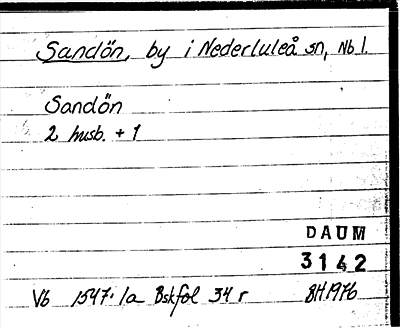 Sandön, by i Nederluleå sn, Nb l.
Sandön
2 husb. + 1
DAUM
3142
Vb 1547:1a Bskfol 34 r BH 1976